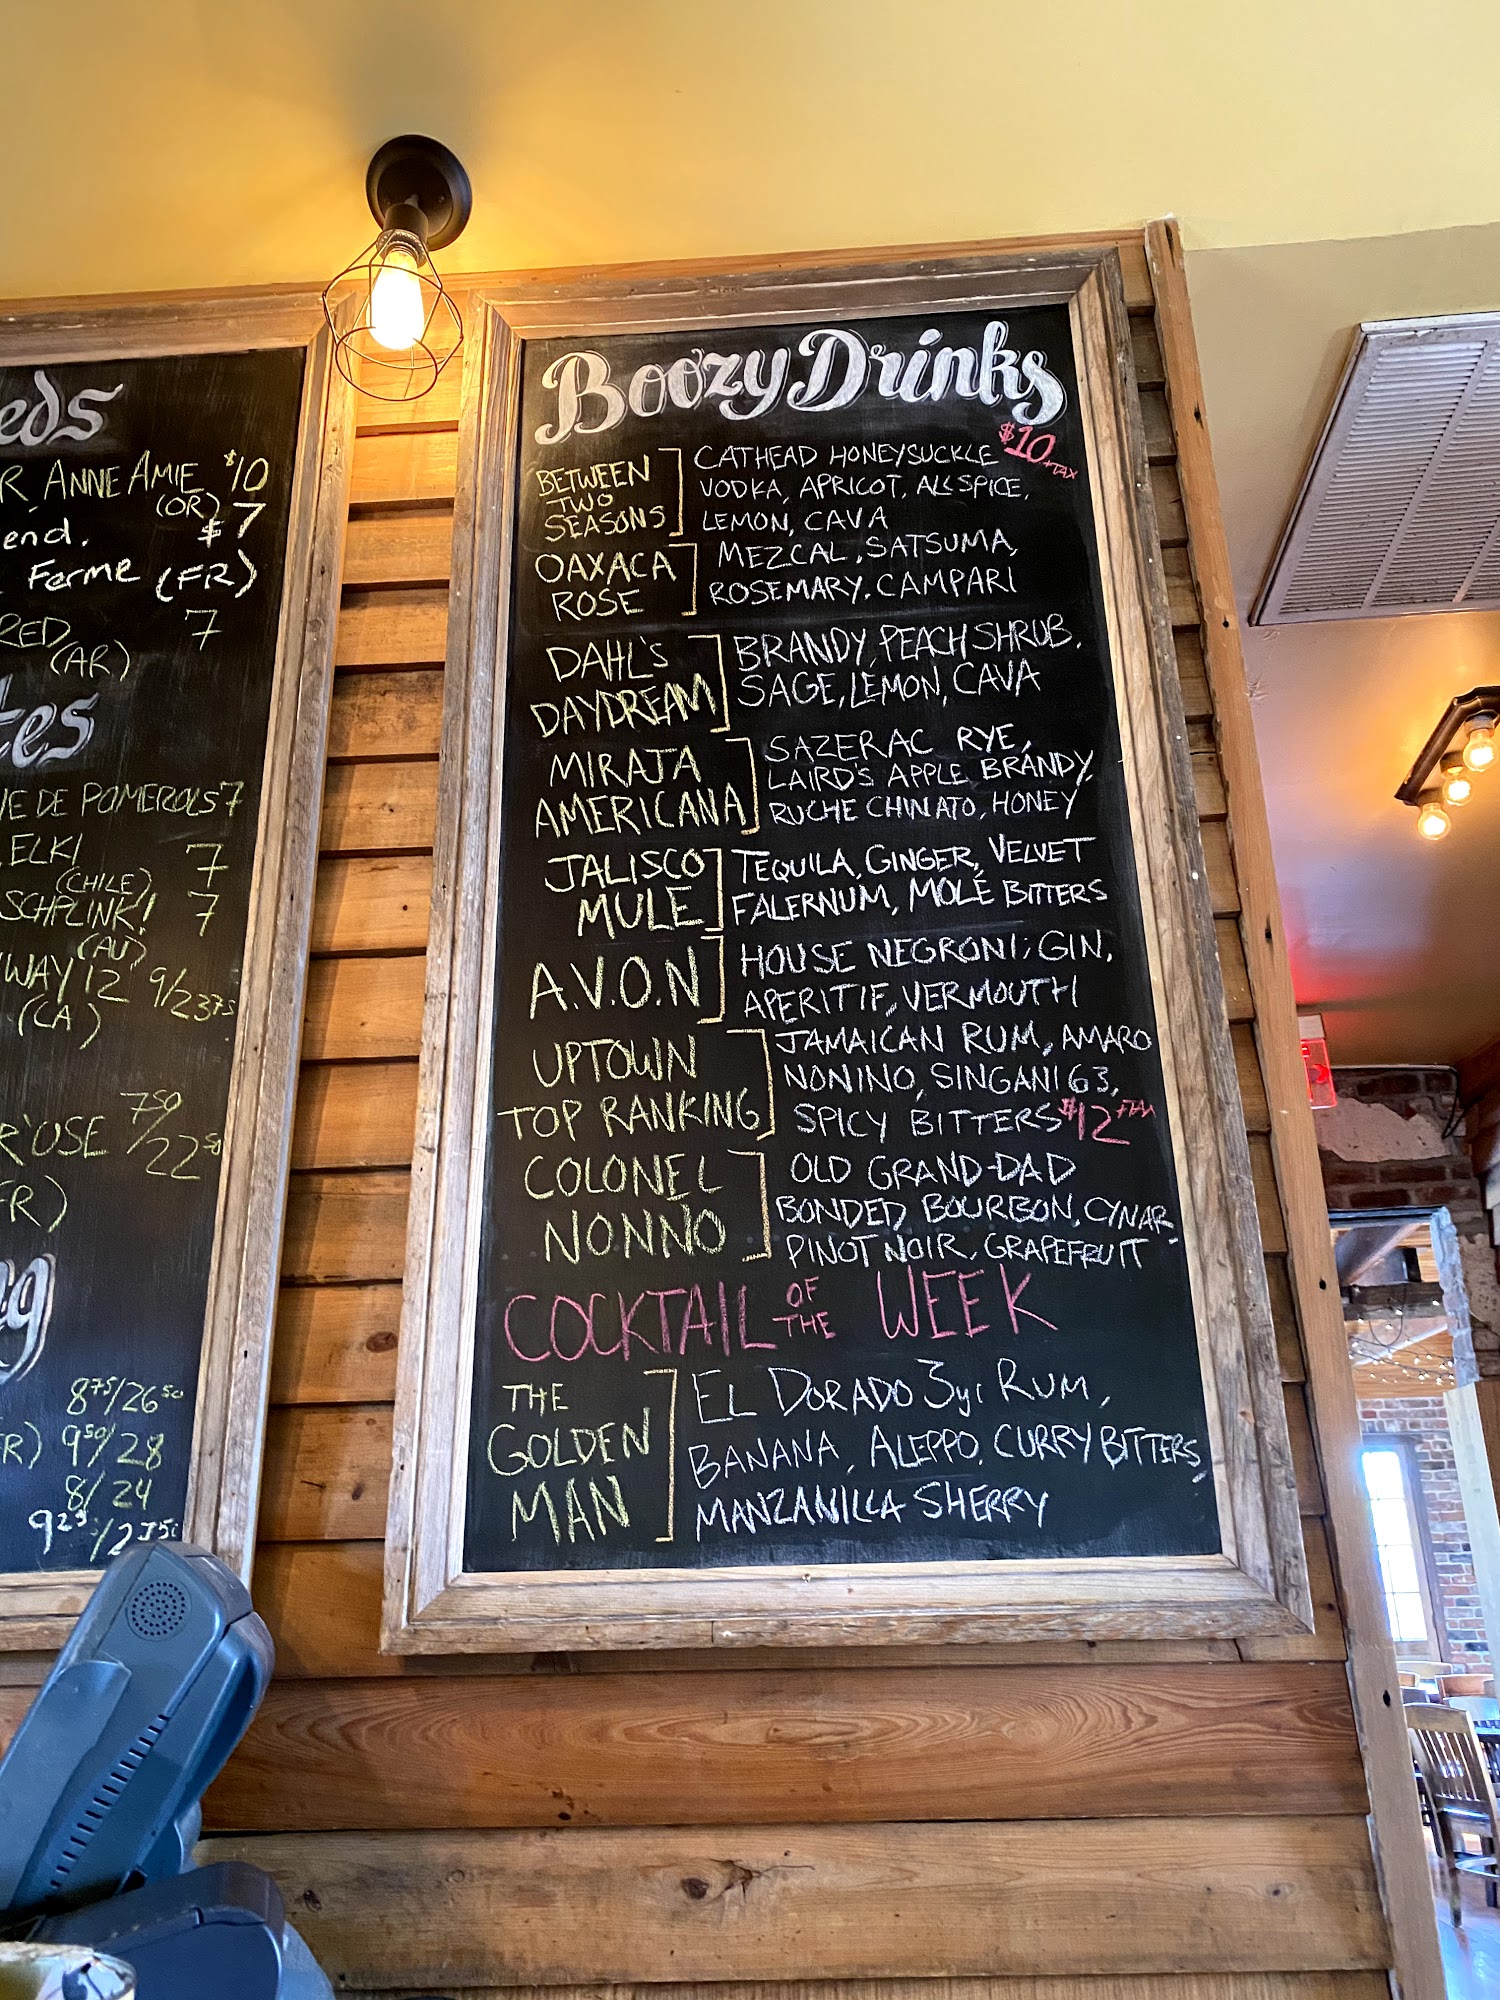 eds
R ANNE AMIE $10
(OR)
end. $7
Ferme (FR)
RED 7
(AR)
tes
DE POMEROLS 7
ELKI 7
(CHILE)
SCHPLINK! 7
(AU)
WAY 12 9/2375
(CA)
R'OSE 750/2250
FR)
g
875/2650
FR) 950/28
8/24
Boozy Drinks
$10 +TAX
BETWEEN TWO SEASONS
CATHEAD HONEYSUCKLE
VODKA, APRICOT, ALLSPICE,
LEMON, CAVA
OAXACA ROSE
MEZCAL, SATSUMA,
ROSEMARY, CAMPARI
DAHL'S DAYDREAM
BRANDY, PEACH SHRUB,
SAGE, LEMON, CAVA
MIRAJA AMERICANA
SAZERAC RYE,
LAIRD'S APPLE BRANDY,
RUCHE CHINATO, HONEY
JALISCO MULE
TEQUILA, GINGER, VELVET
FALERNUM, MOLÉ BITTERS
A.V.O.N
HOUSE NEGRONI; GIN,
APERITIF, VERMOUTH
UPTOWN TOP RANKING
JAMAICAN RUM, AMARO
NONINO, SINGANI 63,
SPICY BITTERS $12 +TAX
COLONEL NONNO
OLD GRAND-DAD
BONDED BOURBON, CYNAR,
PINOT NOIR, GRAPEFRUIT
COCKTAIL OF THE WEEK
THE GOLDEN MAN
EL DORADO 3yr RUM,
BANANA, ALEPPO, CURRY BITTERS,
MANZANILLA SHERRY